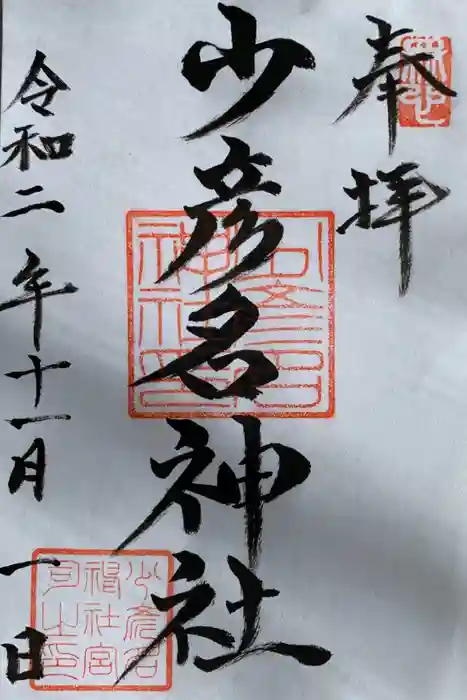 奉拝
少彦名神社
令和二年十一月一日
少彦名神社印
少彦名神社宮司之印